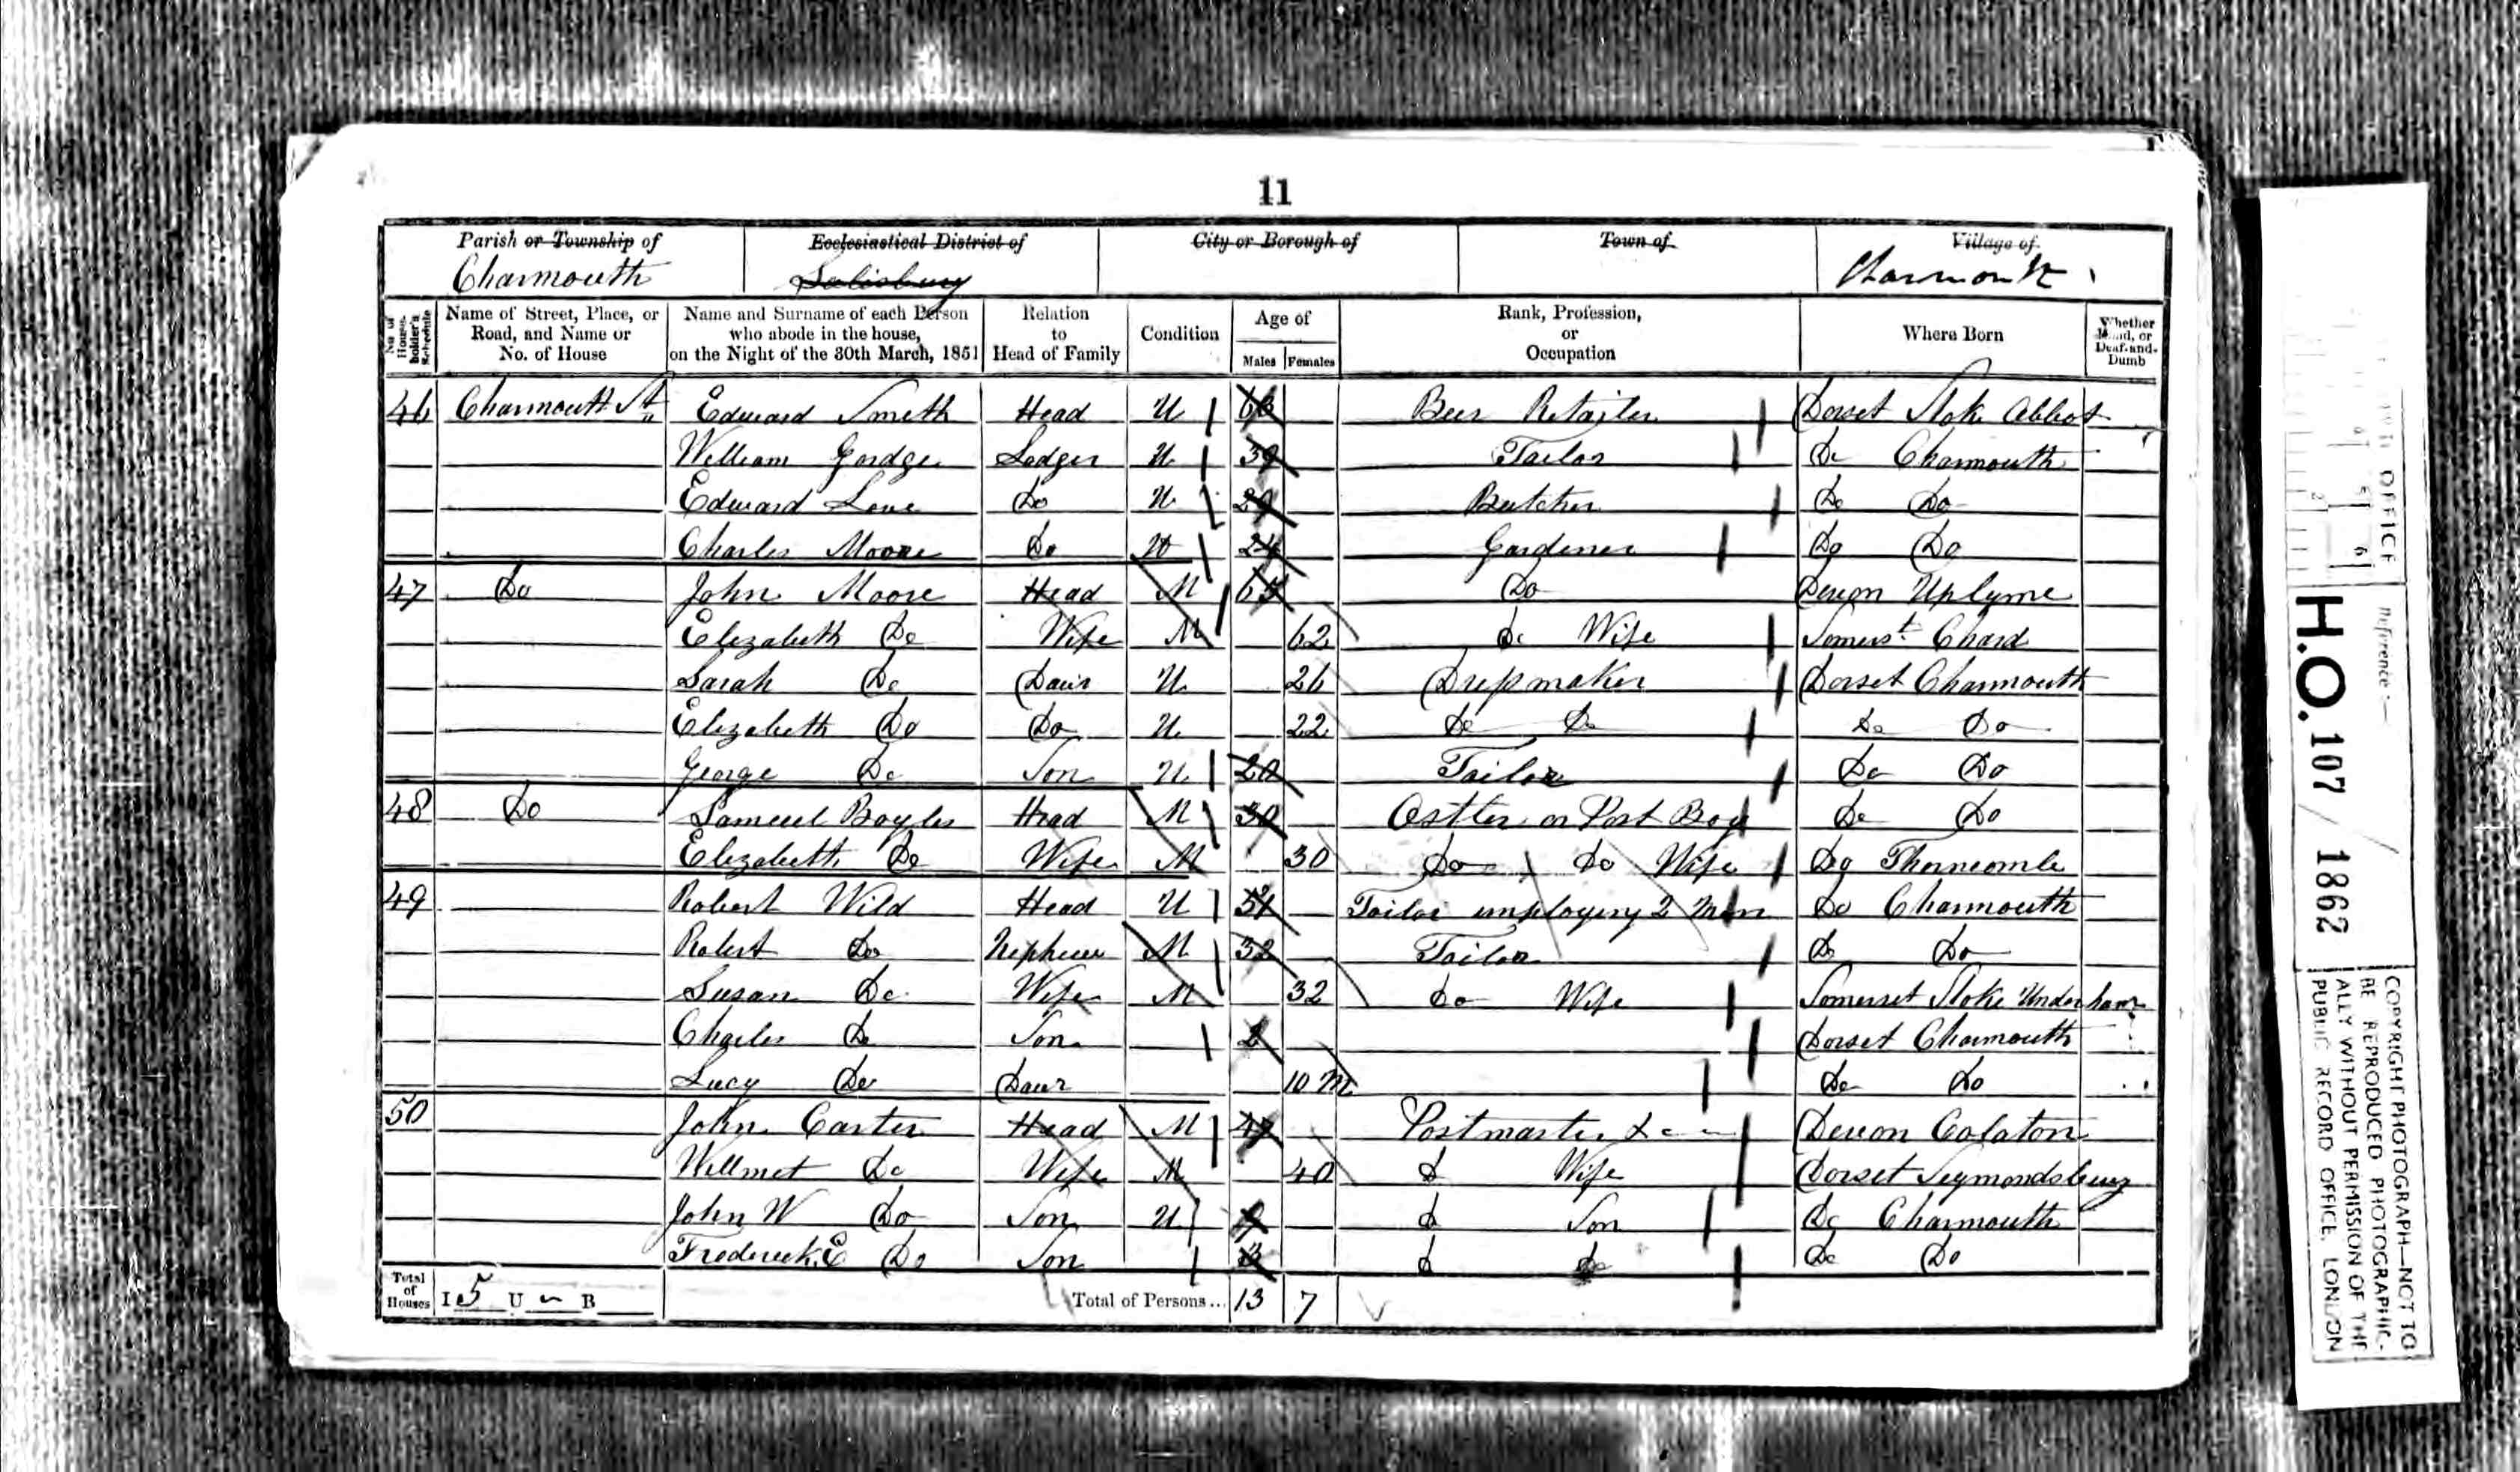 11
Parish or Township of Ecclesiastical District of City or Borough of Town of Village of
Charmouth Salisbury Charmouth
No. of Householder's Schedule Name of Street, Place, or Road, and Name or No. of House Name and Surname of each Person who abode in the house, on the Night of the 30th March, 1851 Relation to Head of Family Condition Age of Males Females Rank, Profession, or Occupation Where Born Whether Blind, or Deaf-and-Dumb
46 Charmouth St Edward Smith Head U 63 Beer Retailer Dorset Stoke Abbot
William Gordge Lodger U 39 Tailor Do Charmouth
Edward Love Do U 29 Butcher Do Do
Charles Moore Do U 24 Gardener Do Do
47 Do John Moore Head M 65 Do Devon Uplyme
Elizabeth Do Wife M 62 Do Wife Somerst Chard
Sarah Do Daur U 26 Dressmaker Dorset Charmouth
Elizabeth Do Do U 22 Do Do Do Do
George Do Son U 20 Tailor Do Do
48 Do Samuel Boyles Head M 30 Ostler or Post Boy Do Do
Elizabeth Do Wife M 30 Do Do Wife Do Thorncombe
49 Robert Wild Head U 51 Tailor employing 2 Men Do Charmouth
Robert Do Nephew M 32 Tailor Do Do
Susan Do Wife M 32 Do Wife Somerset Stoke Underham
Charles Do Son 2 Dorset Charmouth
Lucy Do Daur 10 M Do Do
50 John Carter Head M 47 Postmaster &c Devon Colaton
Willmet Do Wife M 40 D Wife Dorset Seymondsbury
John W Do Son U D Son Do Charmouth
Frederick E Do Son 3 D Do Do Do
Total of Houses I 5 U B Total of Persons... 13 7
OFFICE
Reference :—
H.O. 107 / 1862
COPYRIGHT PHOTOGRAPH—NOT TO BE REPRODUCED PHOTOGRAPHICALLY WITHOUT PERMISSION OF THE PUBLIC RECORD OFFICE, LONDON